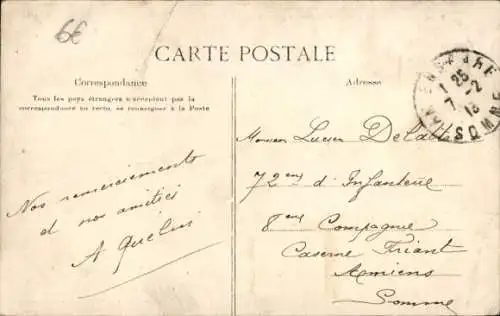 6€
CARTE POSTALE
Correspondance
Tous les pays étrangers n'acceptent pas la
correspondance au recto, se renseigner à la Poste
Nos remerciements
et nos amitiés
A
Adresse
Monsieur Lucien
72eme d'Infanterie
8eme Compagnie
Caserne Friant
Amiens
Somme
1 25
7 - 2
13
SOMME